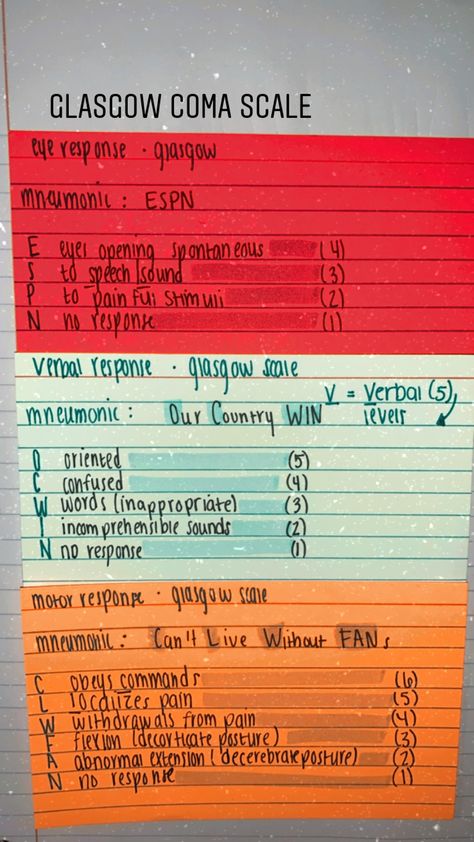 GLASGOW COMA SCALE
eye response · glasgow
mneumonic : ESPN
E eyes opening spontaneous (4)
S to speech/sound (3)
P to painful stimuli (2)
N no response (1)
verbal response · glasgow scale
V = Verbal (5)
levels
mneumonic : Our Country WIN
O oriented (5)
C confused (4)
W words (inappropriate) (3)
I incomprehensible sounds (2)
N no response (1)
motor response · glasgow scale
mneumonic : Can't Live Without FANs
C obeys commands (6)
L localizes pain (5)
W withdrawals from pain (4)
F flexion (decorticate posture) (3)
A abnormal extension (decerebrate posture) (2)
N no response (1)